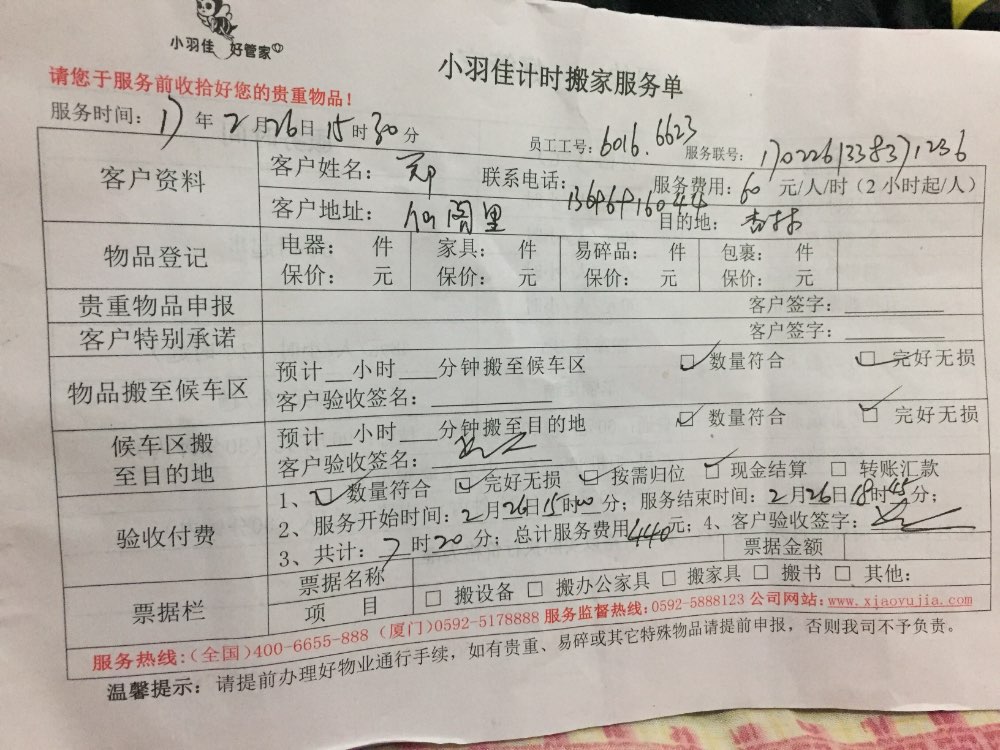 小羽佳 好管家
小羽佳计时搬家服务单
请您于服务前收拾好您的贵重物品！
服务时间：17年2月26日15时30分 员工工号：6016.6623 服务联号：1702261338371236
客户资料 客户姓名： 联系电话：13696916044 服务费用：60元/人/时（2小时起/人）
客户地址：阁里 目的地：杏林
物品登记 电器： 件 家具： 件 易碎品： 件 包裹： 件
保价： 元 保价： 元 保价： 元 保价： 元
贵重物品申报 客户签字：
客户特别承诺 客户签字：
物品搬至候车区 预计__小时___分钟搬至候车区 ☑ 数量符合 ☑ 完好无损
客户验收签名：
候车区搬至目的地 预计__小时___分钟搬至目的地 ☑ 数量符合 ☑ 完好无损
客户验收签名：
验收付费 1、☑ 数量符合 ☑ 完好无损 ☑ 按需归位 ☑ 现金结算 □ 转账汇款
2、服务开始时间：2月26日15时00分；服务结束时间：2月26日18时45分；
3、共计：7时20分；总计服务费用440元；4、客户验收签字：
票据栏 票据名称 票据金额
项 目 □ 搬设备 □ 搬办公家具 □ 搬家具 □ 搬书 □ 其他：
服务热线：（全国）400-6655-888（厦门）0592-5178888 服务监督热线：0592-5888123 公司网站：www.xiaoyujia.com
温馨提示：请提前办理好物业通行手续，如有贵重、易碎或其它特殊物品请提前申报，否则我司不予负责。